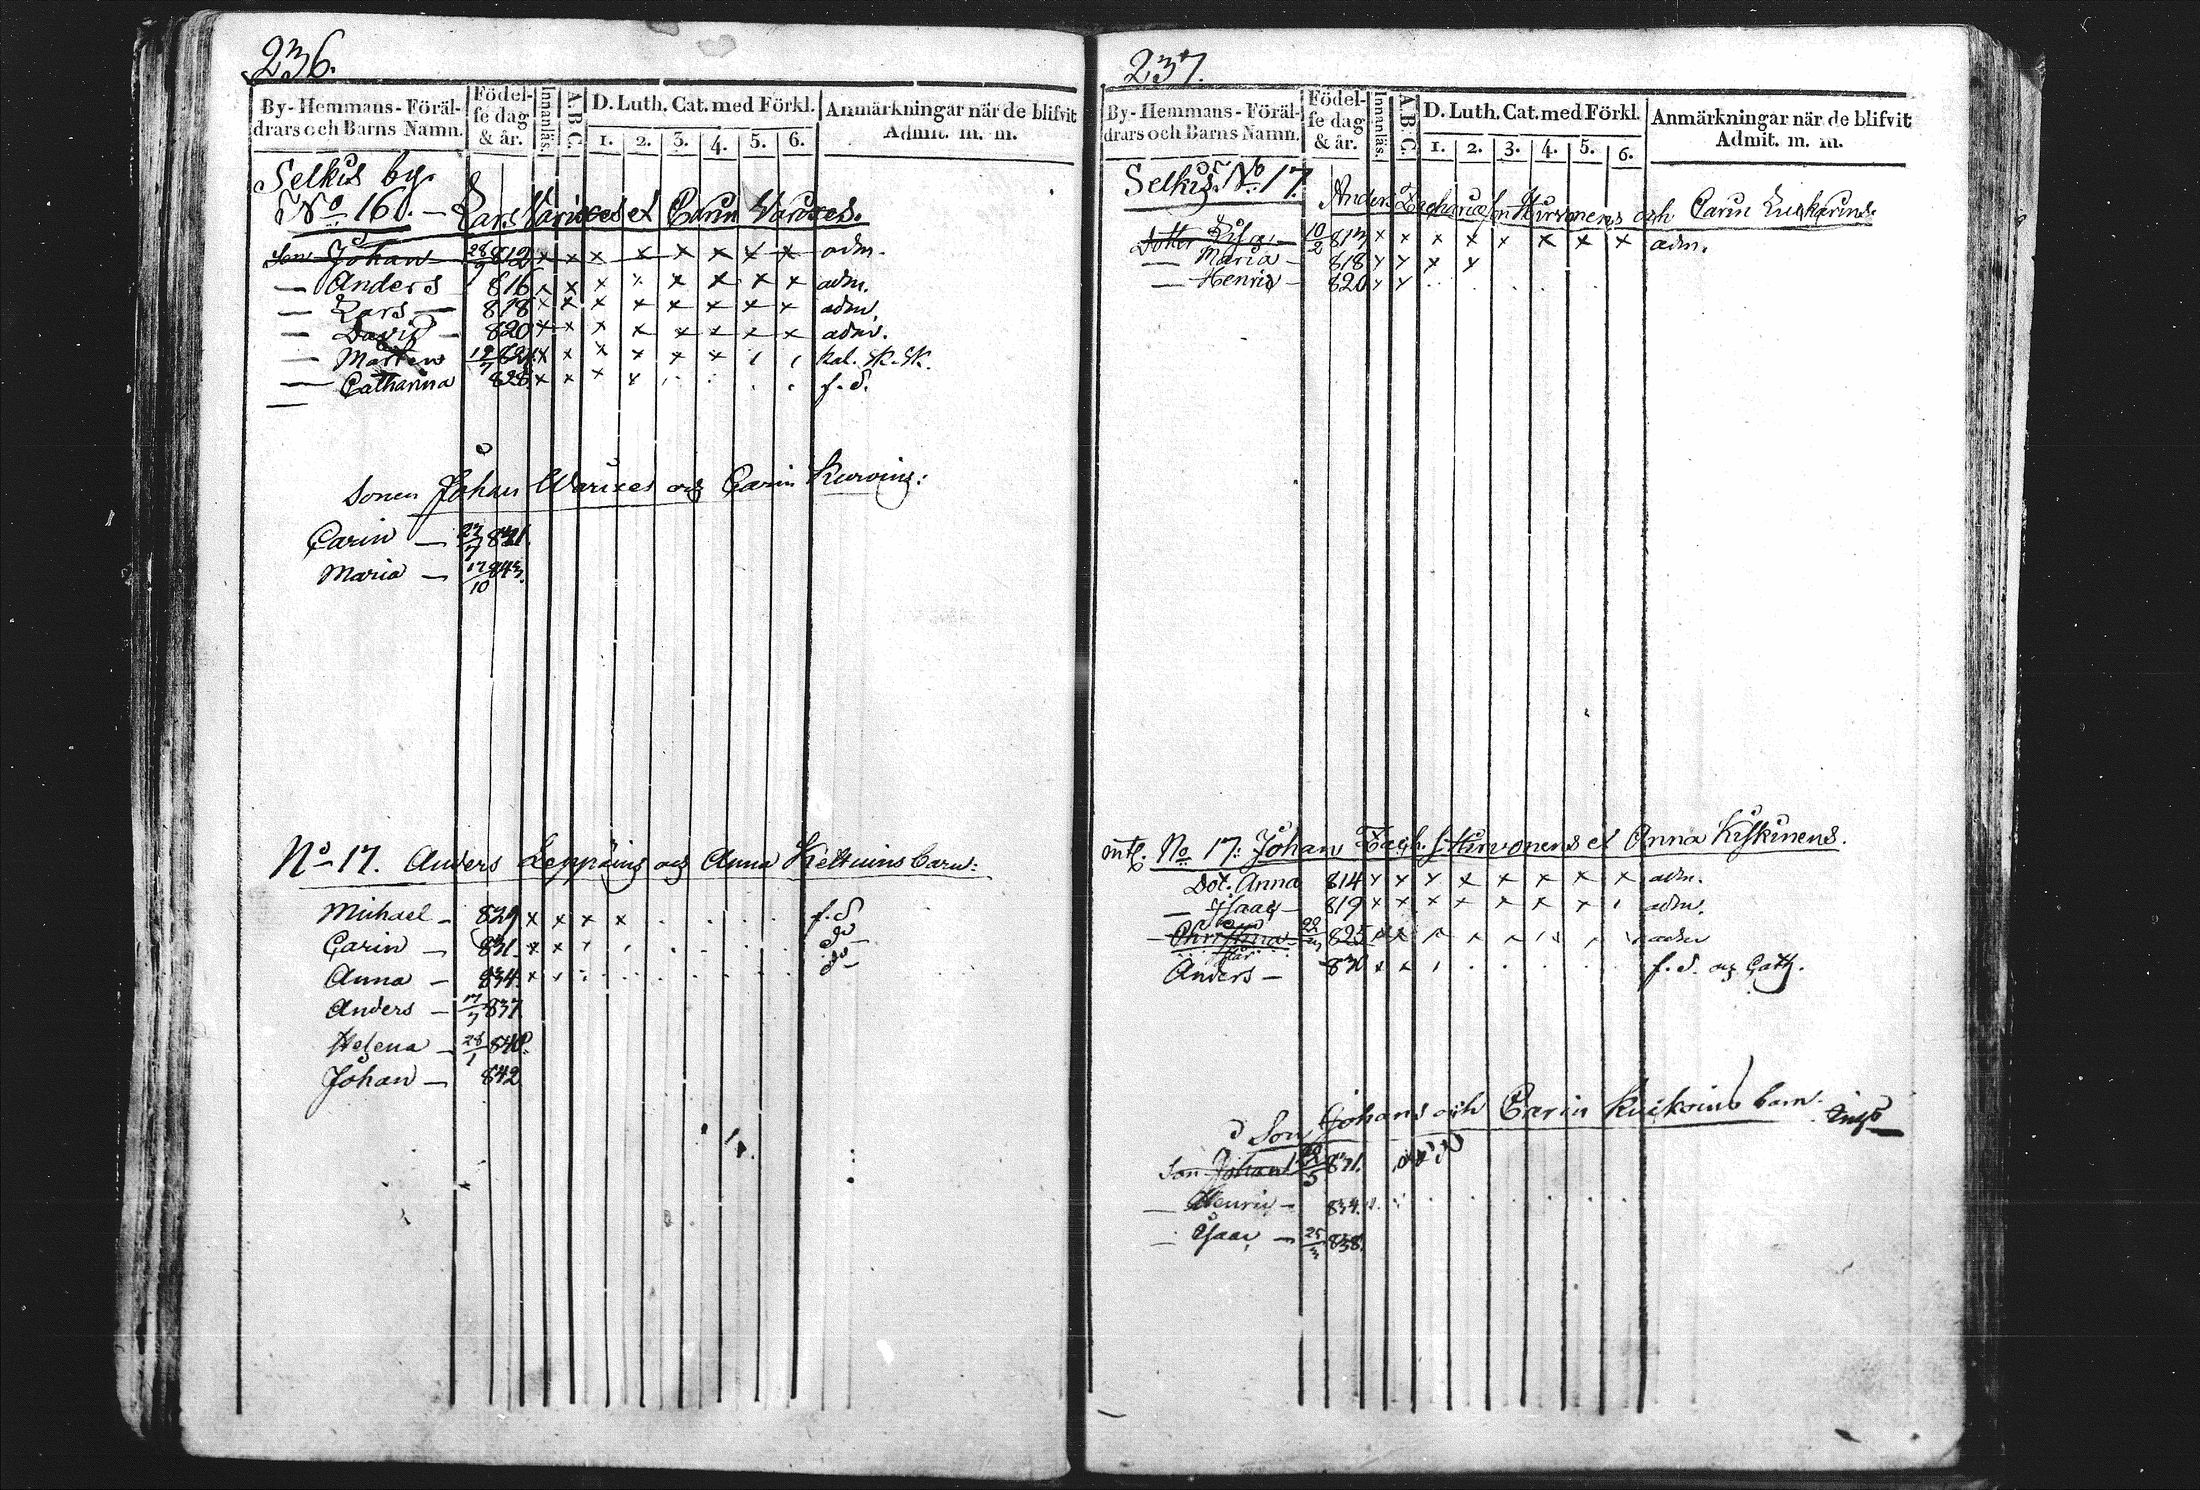 236.
By-Hemmans-Föräldrars och Barns Namn. Födelse dag & år. Innanläs. A.B.C. D. Luth. Cat. med Förkl. 1. 2. 3. 4. 5. 6. Anmärkningar när de blifvit Admit. m. m.
Selkis by.
No 16. – Lars Varixes et Carin Varixes.
Son Johan 28/9 812 x x x x x x x x adm.
— Anders 816 x x x x x x x x adm.
— Lars — 818 x x x x x x x x adm.
— David — 820 x x x x x x x x adm.
— Marten 19/7 821 x x x x x x kal. sk. sk.
— Catharina 828 x x x x f. d.
Sonen Johan Warixes och Carin Kurvins:
Carin — 23/7 841.
Maria — 17/10 843.
No 17. Anders Leppäins och Anna Kettuins barn:
Michael — 829 x x x x f. d
Carin — 831. x x do
Anna — 834. x do
Anders — 17/7 837
Helena — 28/1 840.
Johan — 842
237.
By-Hemmans-Föräldrars och Barns Namn. Födelse dag & år. Innanläs. A.B.C. D. Luth. Cat. med Förkl. 1. 2. 3. 4. 5. 6. Anmärkningar när de blifvit Admit. m. m.
Selkis No 17. Anders Zachariæson Hirvonens och Carin
Dotter Lisa — 10/2 813 x x x x x x x x adm.
— Maria — 818 x x x x
— Henric — 820 x x
No 17: Johan Zach. s. Hirvonens et Anna Kiskinens.
Dot. Anna 814 x x x x x x x x adm.
— Isaac — 819 x x x x x x x adm.
— Christina 825 adm
Anders — 830 x x f. d. och Cath.
Son Johans och Carin Kuikoins barn.
Son Johan 831.
— Henric — 834.
— Isaac — 25/3 838.